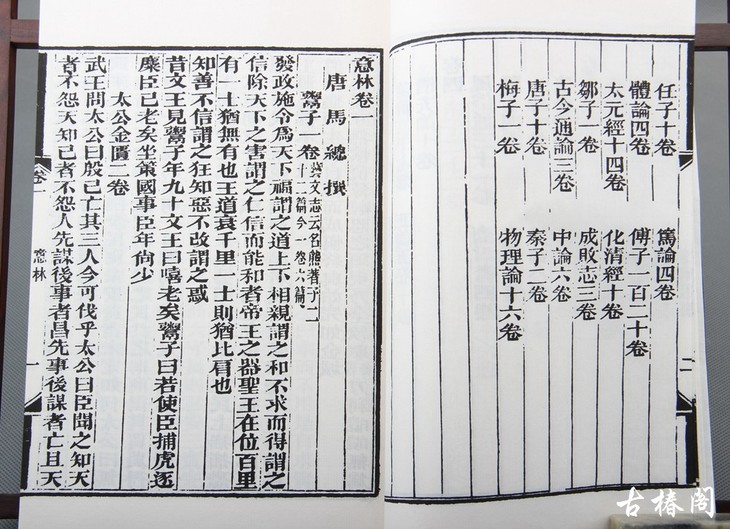 任子十卷 篤論四卷
體論四卷 傅子一百二十卷
太元經十四卷 化清經十卷
鄒子一卷 成敗志三卷
古今通論三卷 中論六卷
唐子十卷 秦子二卷
梅子一卷 物理論十六卷
意林卷一
唐 馬總 撰
鬻子一卷 藝文志云名熊著子二
十二篇今一卷六篇
發政施令爲天下福謂之道上下相親謂之和不求而得謂之
信除天下之害謂之仁信而能和者帝王之器聖王在位百里
有一士猶無有也王道衰千里一士則猶比肩也
知善不信謂之狂知惡不改謂之惑
昔文王見鬻子年九十文王曰嘻老矣鬻子曰若使臣捕虎逐
麋臣已老矣坐策國事臣年尚少
太公金匱二卷
武王問太公曰殷已亡其三人今可伐乎太公曰臣聞之知天
者不怨天知己者不怨人先謀後事者昌先事後謀者亡且天
卷 意林 一
古椿閣